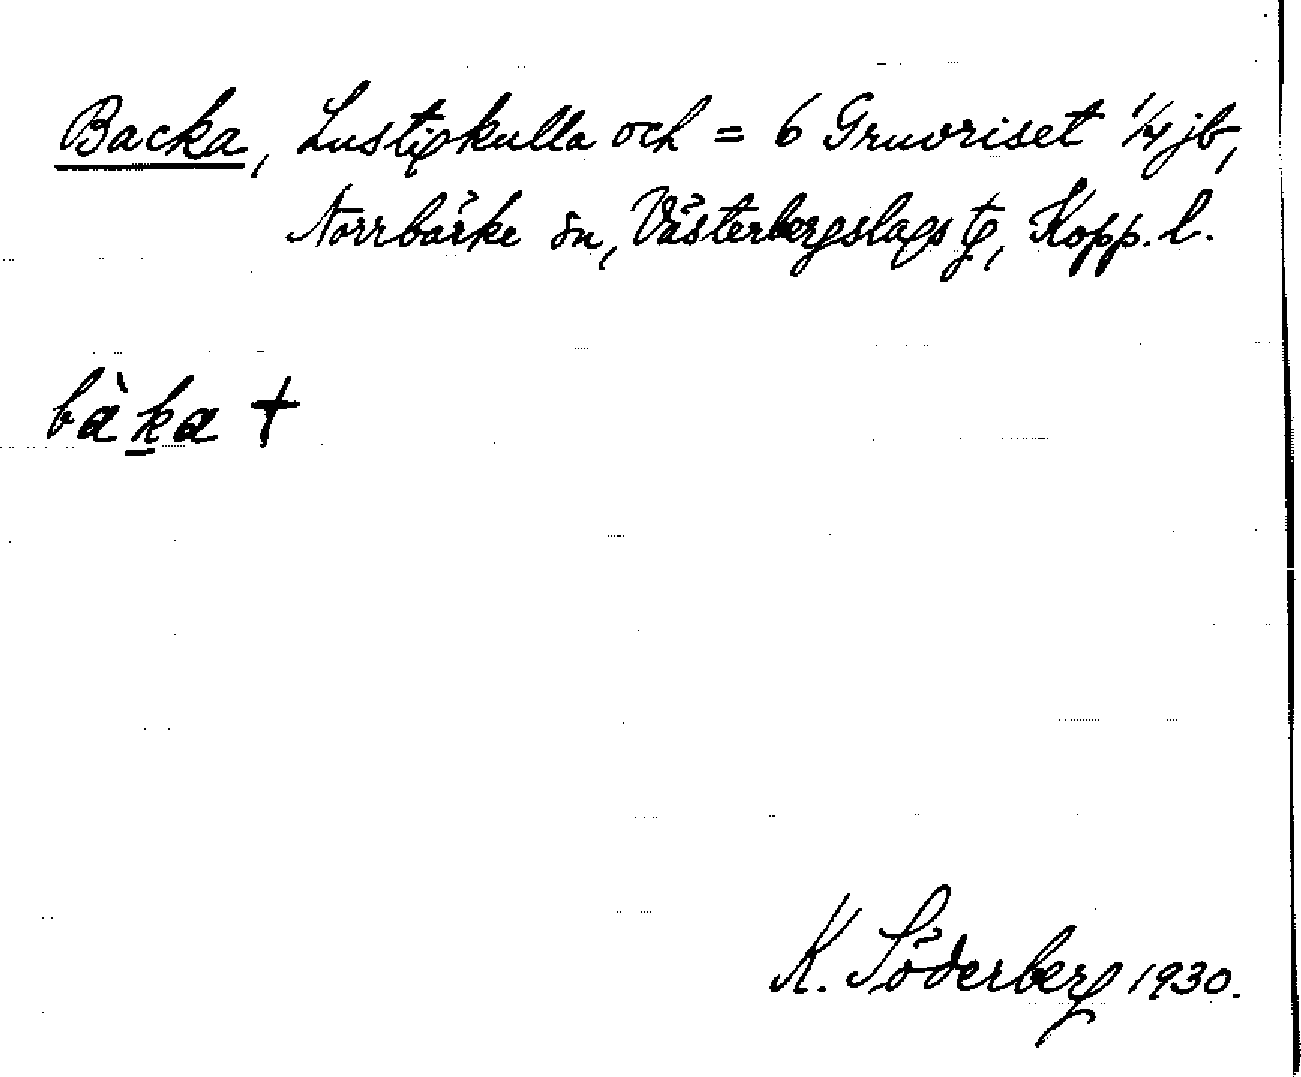 Backa, Lustigkulla och = 6 Gruvriset 1/4 jb,
Norrbärke sn, Västerbergslags tg, Kopp. l.
bàka +
K. Söderberg 1930.